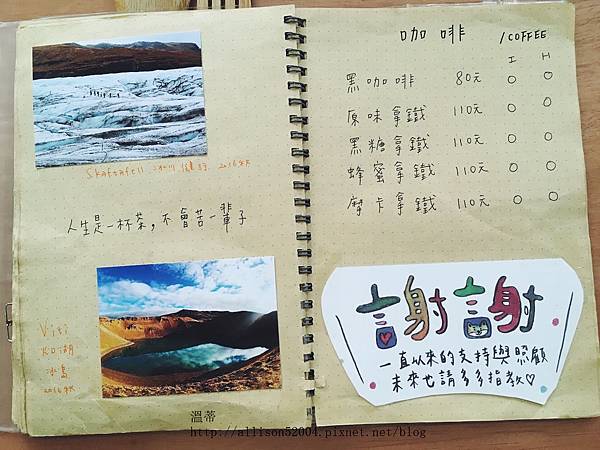 Skaftafell 冰川健行 2016秋
人生是一杯茶，不會苦一輩子
Viti
火口湖
冰島
2016秋
咖啡 /COFFEE
I H
黑咖啡 80元 O O
原味拿鐵 110元 O O
黑糖拿鐵 110元 O O
蜂蜜拿鐵 110元 O O
摩卡拿鐵 110元 O O
謝謝
一直以來的支持與照顧
未來也請多多指教♡
溫蒂
http://allison52004.pixnet.net/blog